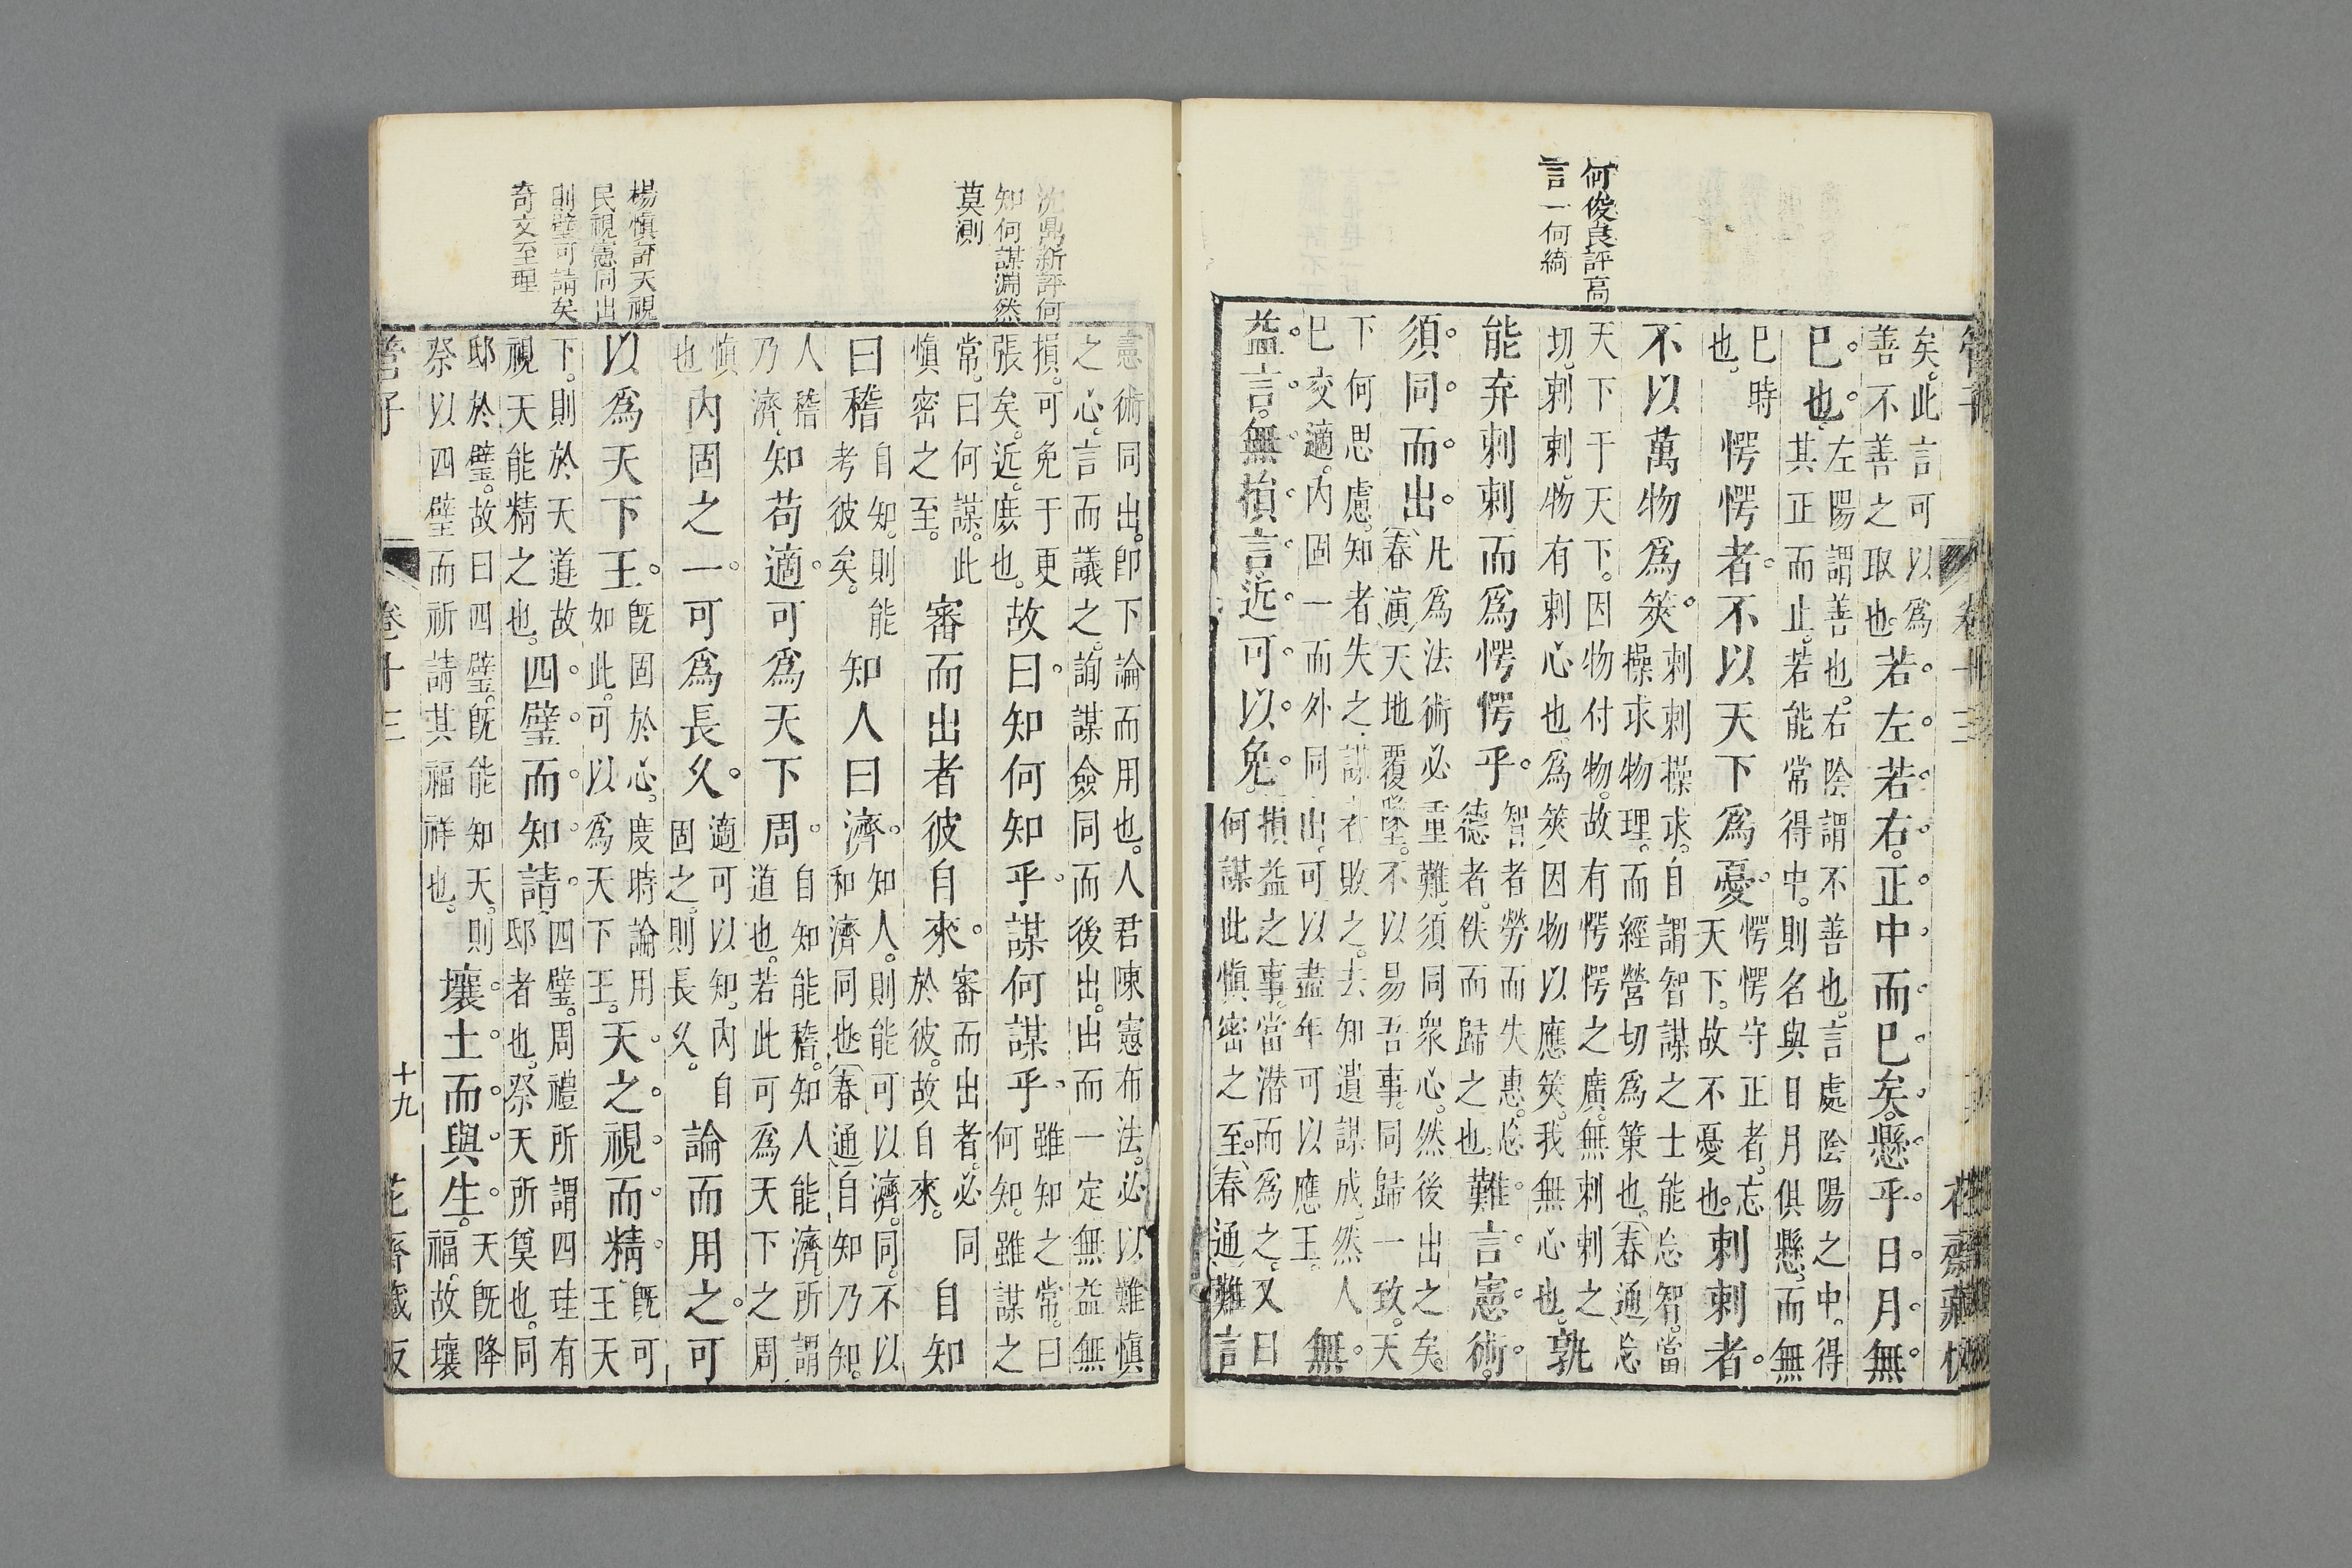 管子　卷十三　花齋藏板
何俊良評高
言一何綺
矣。此言可以爲
善不善之取也。
若左若右。正中而已矣。懸乎日月無
已也。
左陽謂善也。右陰謂不善也。言處陰陽之中。得
其正而止。若能常得中。則名與日月俱懸。而無
已時
也。
愕愕者。不以天下爲憂。
愕愕守正者。忘
天下。故不憂也。
刺刺者。
不以萬物爲筴。
刺刺操求。自謂智謀之士能忘智。當
操求物理。而經營切爲策也。(春通)忘
天下于天下。因物付物。故有愕愕之廣。無刺刺之
切。刺刺物有刺心也。爲筴因物以應筴。我無心也。
孰
能弃刺刺而爲愕愕乎。
智者勞而失惠。忘
德者。佚而歸之也。
難言憲術。
須同而出。
凡爲法術必重難。須同衆心。然後出之矣。
(春演)天地覆墜。不以易吾事。同歸一致。天
下何思慮。知者失之。謀者敗之。去知遺謀成。然人
已交適。內固一而外同出。可以盡年可以應王。
無
益言。無損言。近可以免。
損益之事。當潛而爲之。又曰
何謀此慎密之至。(春通)難言
沈鼎新評何
知何謀淵然
莫測
楊慎評天視
民視憲同出
則璧可請矣
奇文至理
憲術同出。卽下論而用也。人君陳憲布法。必以難慎
之心。言而議之。詢謀僉同而後出。出而一定無益無
損。可免于更
張矣。近。庶也。
故曰。知何知乎。謀何謀乎。
雖知之常。曰
何知。雖謀之
常。曰何謀。此
慎密之至。
審而出者彼自來。
審而出者。必同
於彼。故自來。
自知
曰稽
自知。則能
考彼矣。
知人曰濟。
知人。則能可以濟。同。不以
和濟同也。(春通)自知乃知。
人稽
乃濟。
知苟適。可爲天下周。
自知能稽。知人能濟。所謂
道也。若此可爲天下之周
慎
也
內固之一。可爲長久。
適可以知。內自
固之。則長久。
論而用之。可
以爲天下王。
旣固於心。度時論用
如此。可以爲天下王。
天之視而精。
旣可
王天
下。則於天道故
視天能精之也。
四璧而知請。
四璧。周禮所謂四珪有
邸者也。祭天所奠也。同
邸於璧。故曰四璧。旣能知天。則
祭以四璧而祈請其福祥也。
壤土而與生。
天旣降
福。故壤
管子　卷十三　十九　花齋藏板